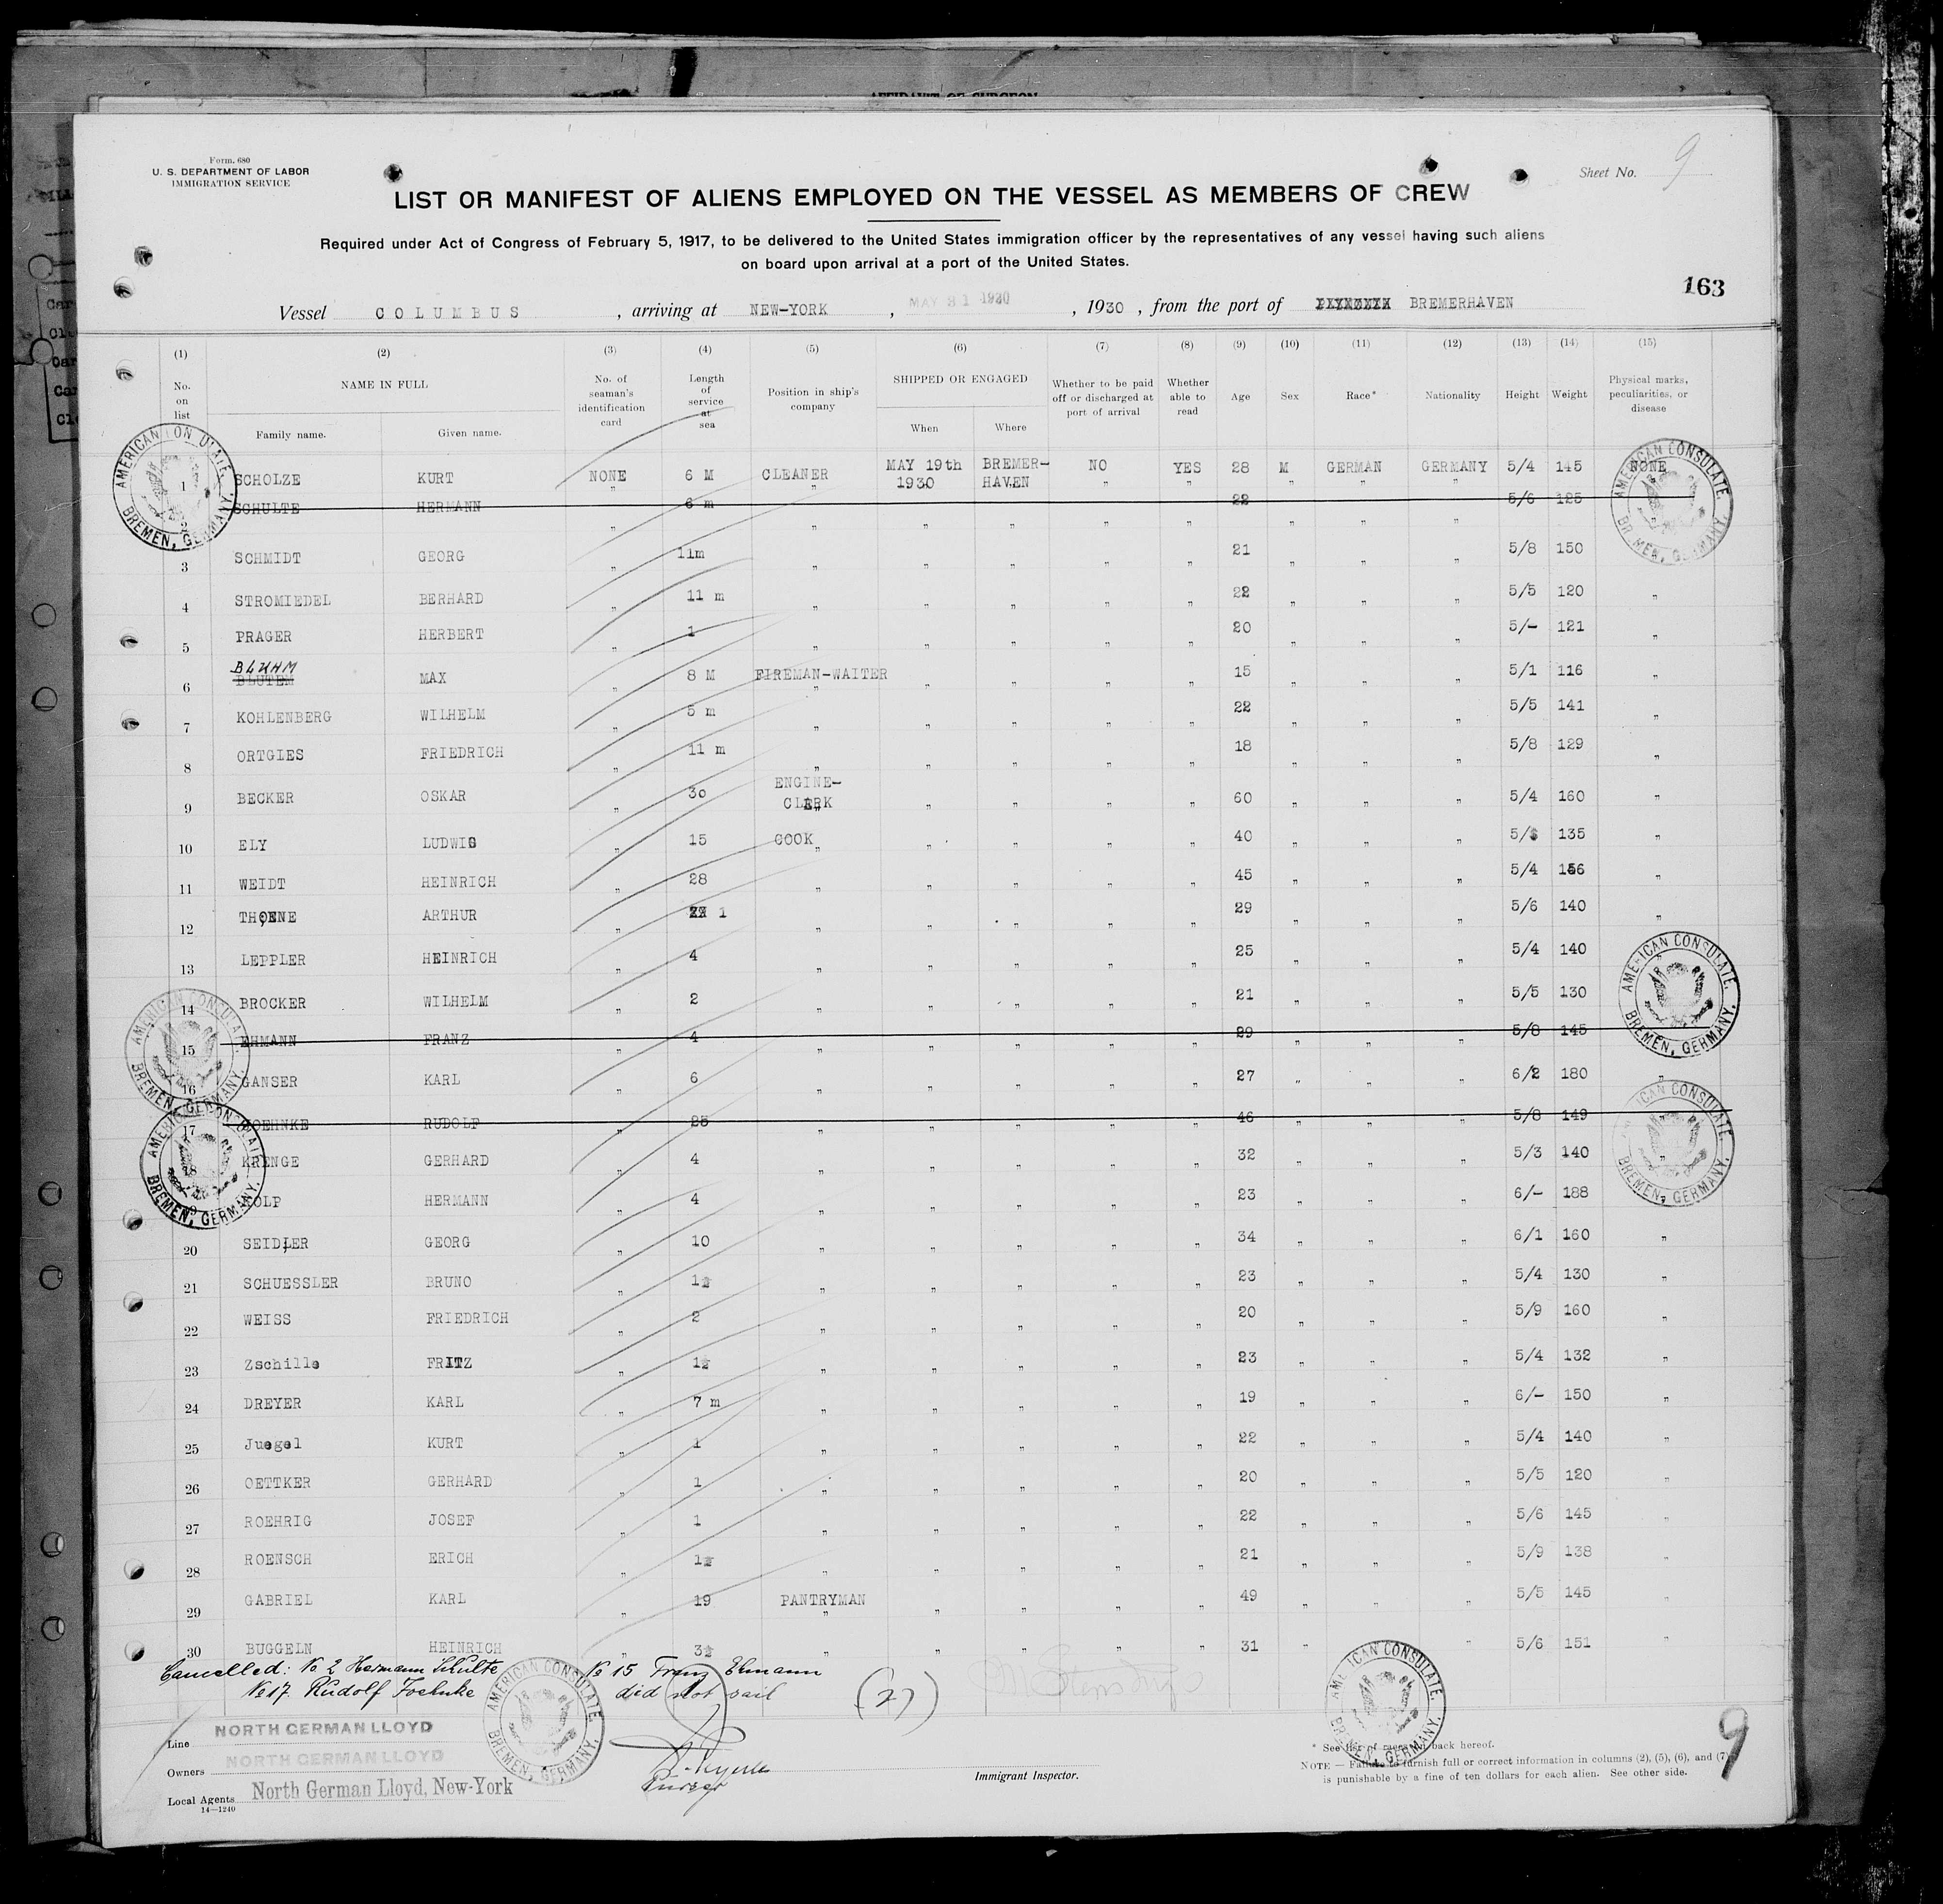 AFFIDAVIT OF SURGEON
Form. 680
U. S. DEPARTMENT OF LABOR
IMMIGRATION SERVICE
Sheet No. 9
LIST OR MANIFEST OF ALIENS EMPLOYED ON THE VESSEL AS MEMBERS OF CREW
Required under Act of Congress of February 5, 1917, to be delivered to the United States immigration officer by the representatives of any vessel having such aliens
on board upon arrival at a port of the United States.
163
Vessel COLUMBUS , arriving at NEW-YORK , MAY 31 1930 , 1930 , from the port of BREMERHAVEN
(1) (2) (3) (4) (5) (6) (7) (8) (9) (10) (11) (12) (13) (14) (15)
No. on list NAME IN FULL Family name. Given name. No. of seaman's identification card Length of service at sea Position in ship's company SHIPPED OR ENGAGED When Where Whether to be paid off or discharged at port of arrival Whether able to read Age Sex Race* Nationality Height Weight Physical marks, peculiarities, or disease
1 SCHOLZE KURT NONE 6 M CLEANER MAY 19th 1930 BREMER-HAVEN NO YES 28 M GERMAN GERMANY 5/4 145 NONE
2 SCHULTE HERMANN " 6 m " " " " " 22 " " " 5/6 125 "
3 SCHMIDT GEORG " 11m " " " " " 21 " " " 5/8 150
4 STROMIEDEL BERHARD " 11 m " " " " " 22 " " " 5/5 120 "
5 PRAGER HERBERT " 1 " " " " " 20 " " " 5/- 121 "
6 BLUHM BLUTEM MAX " 8 M FIREMAN-WAITER " " " " 15 " " " 5/1 116 "
7 KOHLENBERG WILHELM " 5 m " " " " " 22 " " " 5/5 141 "
8 ORTGIES FRIEDRICH " 11 m " " " " " 18 " " " 5/8 129 "
9 BECKER OSKAR " 30 ENGINE-CLERK " " " " 60 " " " 5/4 160 "
10 ELY LUDWIG " 15 COOK " " " " 40 " " " 5/ 135 "
11 WEIDT HEINRICH " 28 " " " " " 45 " " " 5/4 "
12 THOENE ARTHUR " 1 " " " " " 29 " " " 5/6 140 "
13 LEPPLER HEINRICH " 4 " " " " " 25 " " " 5/4 140
14 BROCKER WILHELM " 2 " " " " " 21 " " " 5/5 130
15 EHMANN FRANZ " 4 " " " " " 29 " " " 5/8 145
16 GANSER KARL " 6 " " " " " 27 " " " 6/2 180 "
17 RUDOLF " 25 " " " " " 46 " " " 5/8 149
18 KRENGE GERHARD " 4 " " " " " 32 " " " 5/3 140 "
HERMANN " 4 " " " " " 23 " " " 6/- 188 "
20 SEIDLER GEORG " 10 " " " " " 34 " " " 6/1 160 "
21 SCHUESSLER BRUNO " 1½ " " " " " 23 " " " 5/4 130 "
22 WEISS FRIEDRICH " 2 " " " " " 20 " " " 5/9 160 "
23 Zschille FRITZ " 1½ " " " " " 23 " " " 5/4 132 "
24 DREYER KARL " 7 m " " " " " 19 " " " 6/- 150 "
25 Juegel KURT " 1 " " " " " 22 " " " 5/4 140 "
26 OETTKER GERHARD " 1 " " " " " 20 " " " 5/5 120 "
27 ROEHRIG JOSEF " 1 " " " " " 22 " " " 5/6 145 "
28 ROENSCH ERICH " 1½ " " " " " 21 " " " 5/9 138 "
29 GABRIEL KARL " 19 PANTRYMAN " " " " 49 " " " 5/5 145 "
30 BUGGELN HEINRICH " 3½ " " " " " 31 " " " 5/6 151 "
Cancelled: No 2 Hermann Schulte No 15 Franz Ehmann
No 17. Rudolf Joehnke did not sail (27)
AMERICAN CONSULATE, BREMEN, GERMANY.
AMERICAN CONSULATE, BREMEN, GERMANY.
AMERICAN CONSULATE, BREMEN, GERMANY.
AMERICAN CONSULATE, BREMEN, GERMANY.
AMERICAN CONSULATE, BREMEN, GERMANY.
AMERICAN CONSULATE, BREMEN, GERMANY.
AMERICAN CONSULATE, BREMEN, GERMANY.
AMERICAN CONSULATE, BREMEN, GERMANY.
Line NORTH GERMAN LLOYD
Owners NORTH GERMAN LLOYD
Local Agents North German Lloyd, New-York
14—1240
Purser
Immigrant Inspector.
* See list of races on back hereof.
NOTE — Failure to furnish full or correct information in columns (2), (5), (6), and (7)
is punishable by a fine of ten dollars for each alien. See other side.
9